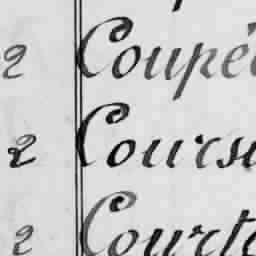 2 Coupé
2 Cours
2 Court